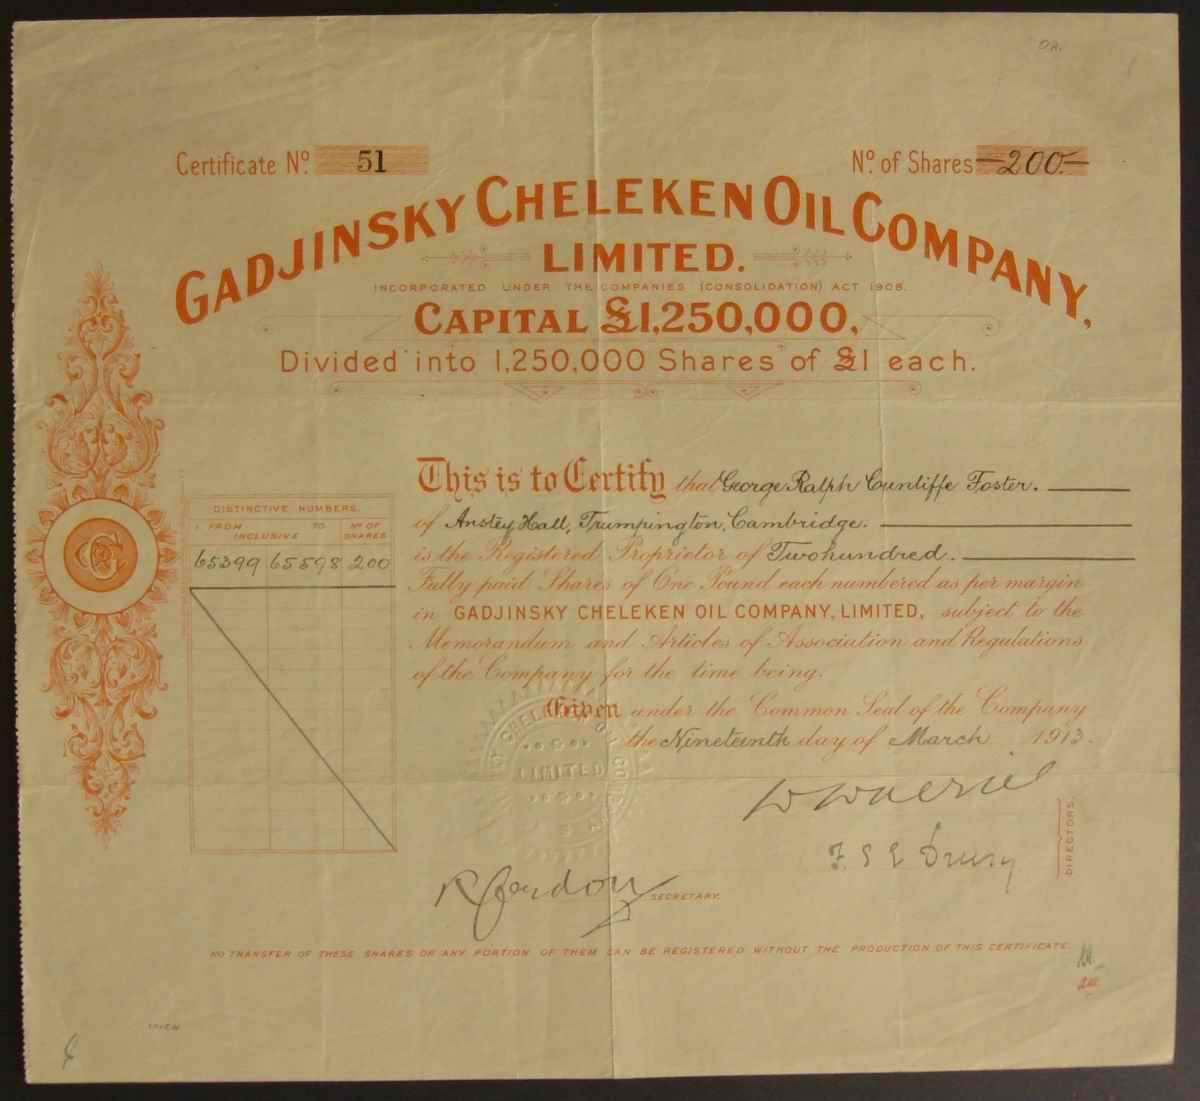 Certificate Nº. 51
Nº. of Shares —200.—
GADJINSKY CHELEKEN OIL COMPANY,
LIMITED.
INCORPORATED UNDER THE COMPANIES (CONSOLIDATION) ACT 1908.
CAPITAL £1,250,000,
Divided into 1,250,000 Shares of £1 each.
This is to Certify that George Ralph Cunliffe Foster.
of Anstey Hall, Trumpington, Cambridge.
is the Registered Proprietor of Two hundred.
Fully paid Shares of One Pound each numbered as per margin
in GADJINSKY CHELEKEN OIL COMPANY, LIMITED, subject to the
Memorandum and Articles of Association and Regulations
of the Company for the time being.
DISTINCTIVE NUMBERS.
FROM TO Nº OF
INCLUSIVE SHARES
65399 65598 200
Given under the Common Seal of the Company
the Nineteenth day of March 1913.
CHELEKEN OIL
LIMITED
DIRECTORS.
R Gordon
SECRETARY.
NO TRANSFER OF THESE SHARES OR ANY PORTION OF THEM CAN BE REGISTERED WITHOUT THE PRODUCTION OF THIS CERTIFICATE.